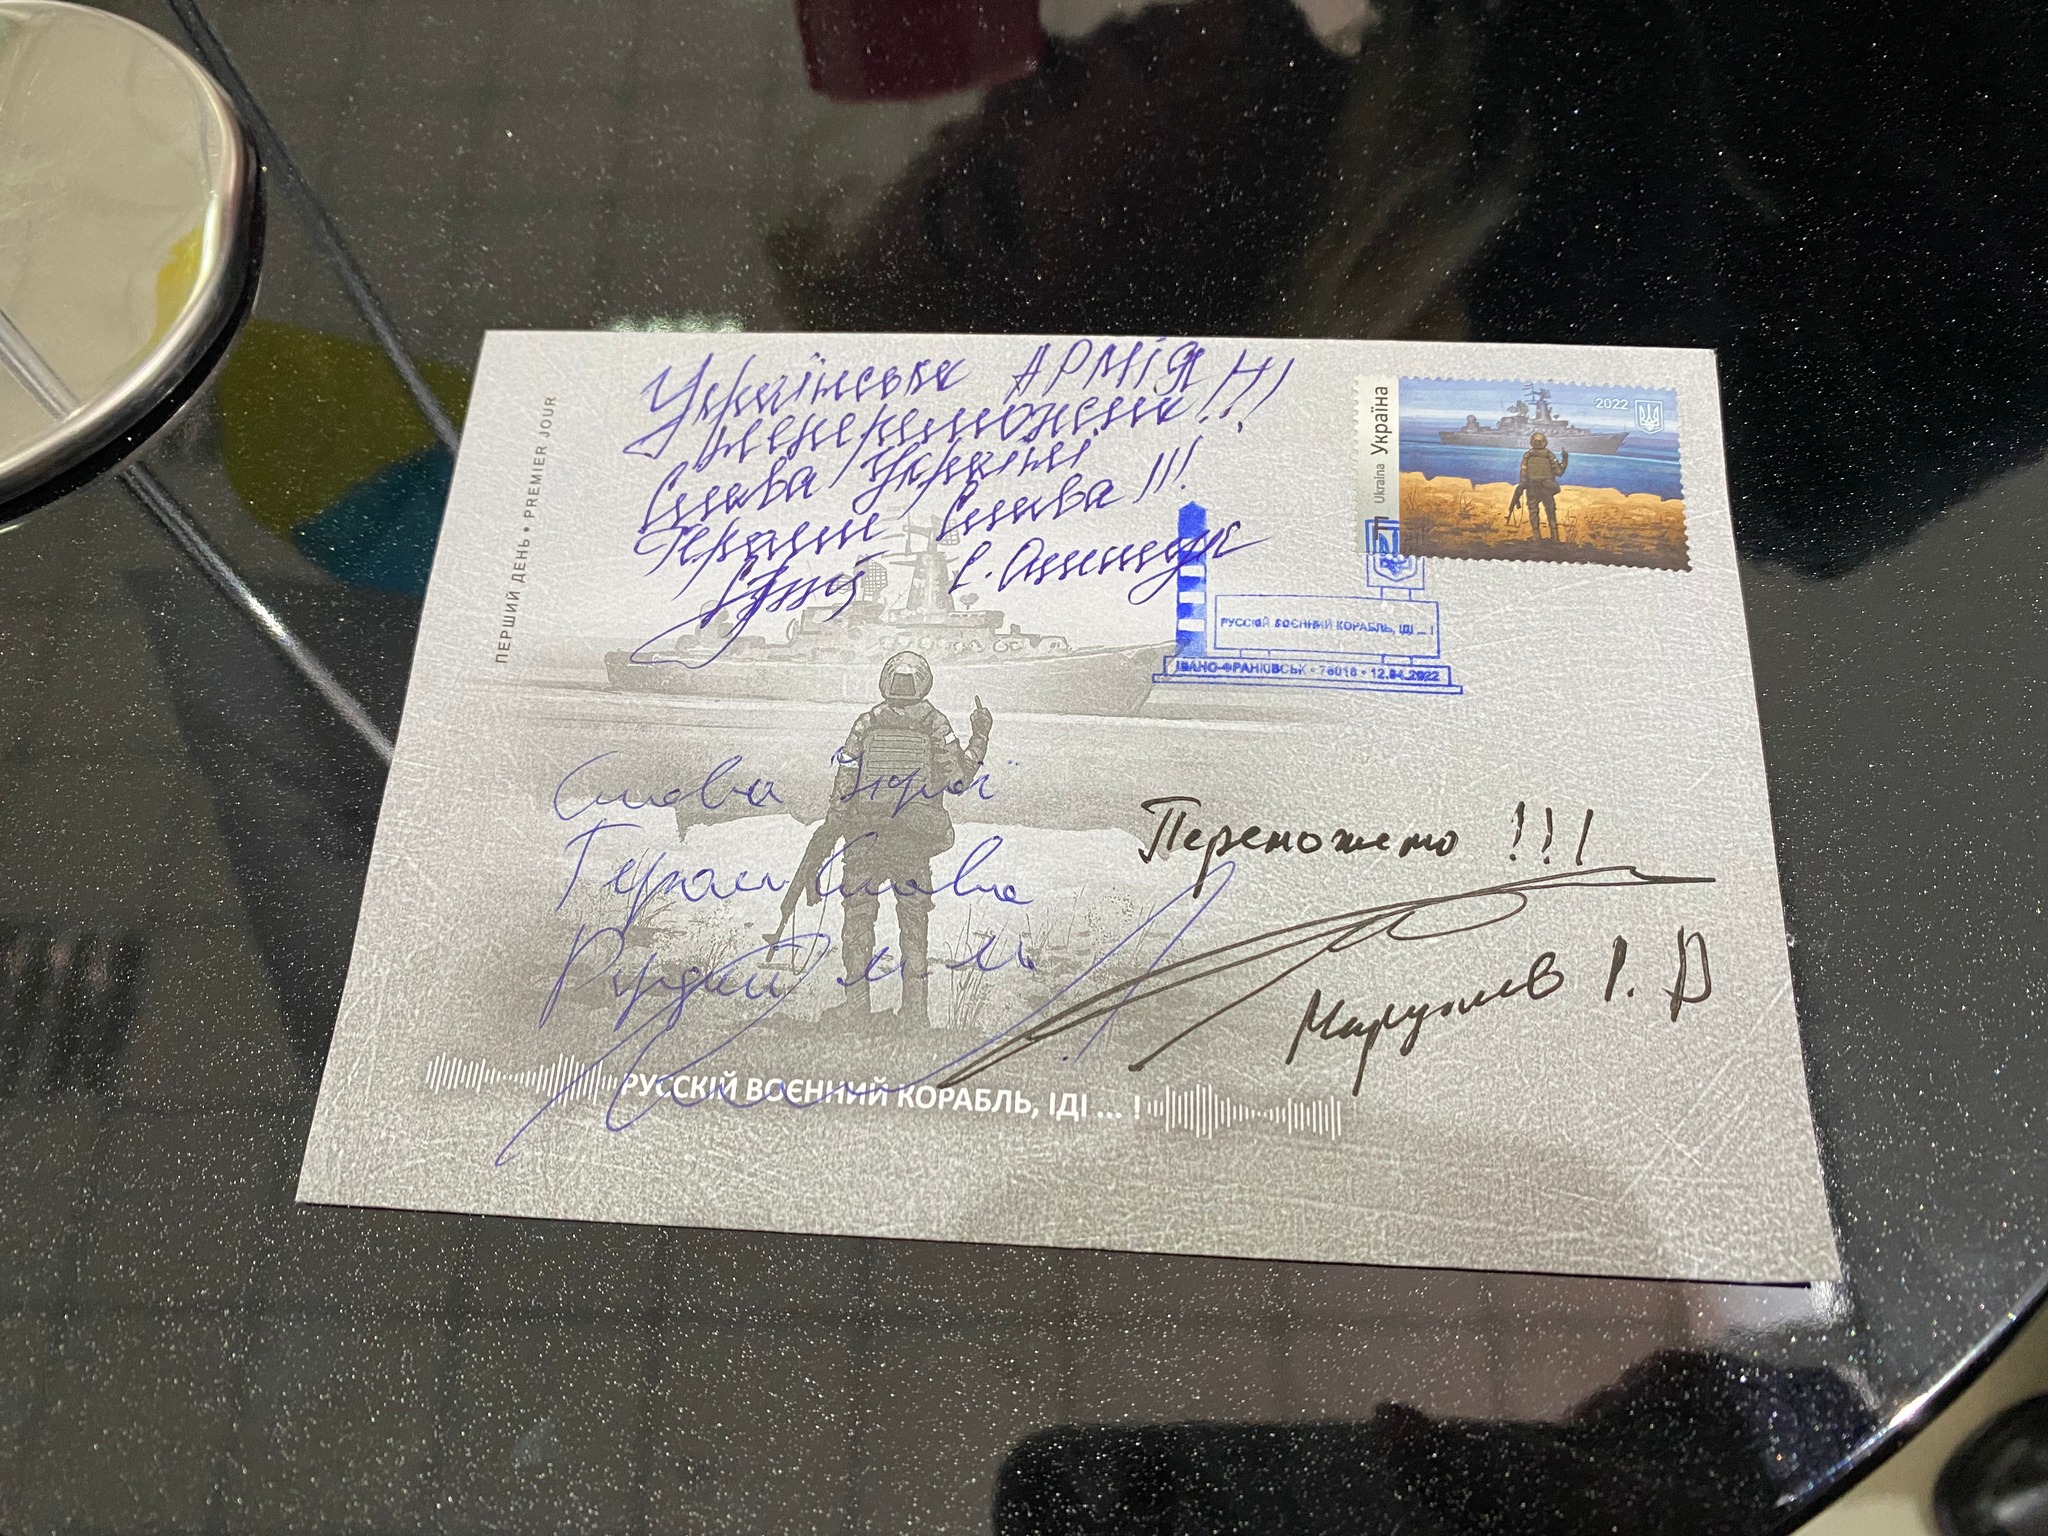 Українська АРМІЯ
непереможна!!!
Слава Україні
Героям Слава!!!
ПЕРШИЙ ДЕНЬ • PREMIER JOUR
Ukraina Україна
2022
РУССКІЙ ВОЄННИЙ КОРАБЛЬ, ІДІ ... !
ІВАНО-ФРАНКІВСЬК • 76018 • 12.04.2022
Слава Україні
Героям Слава
Переможемо !!!
РУССКІЙ ВОЄННИЙ КОРАБЛЬ, ІДІ ... !